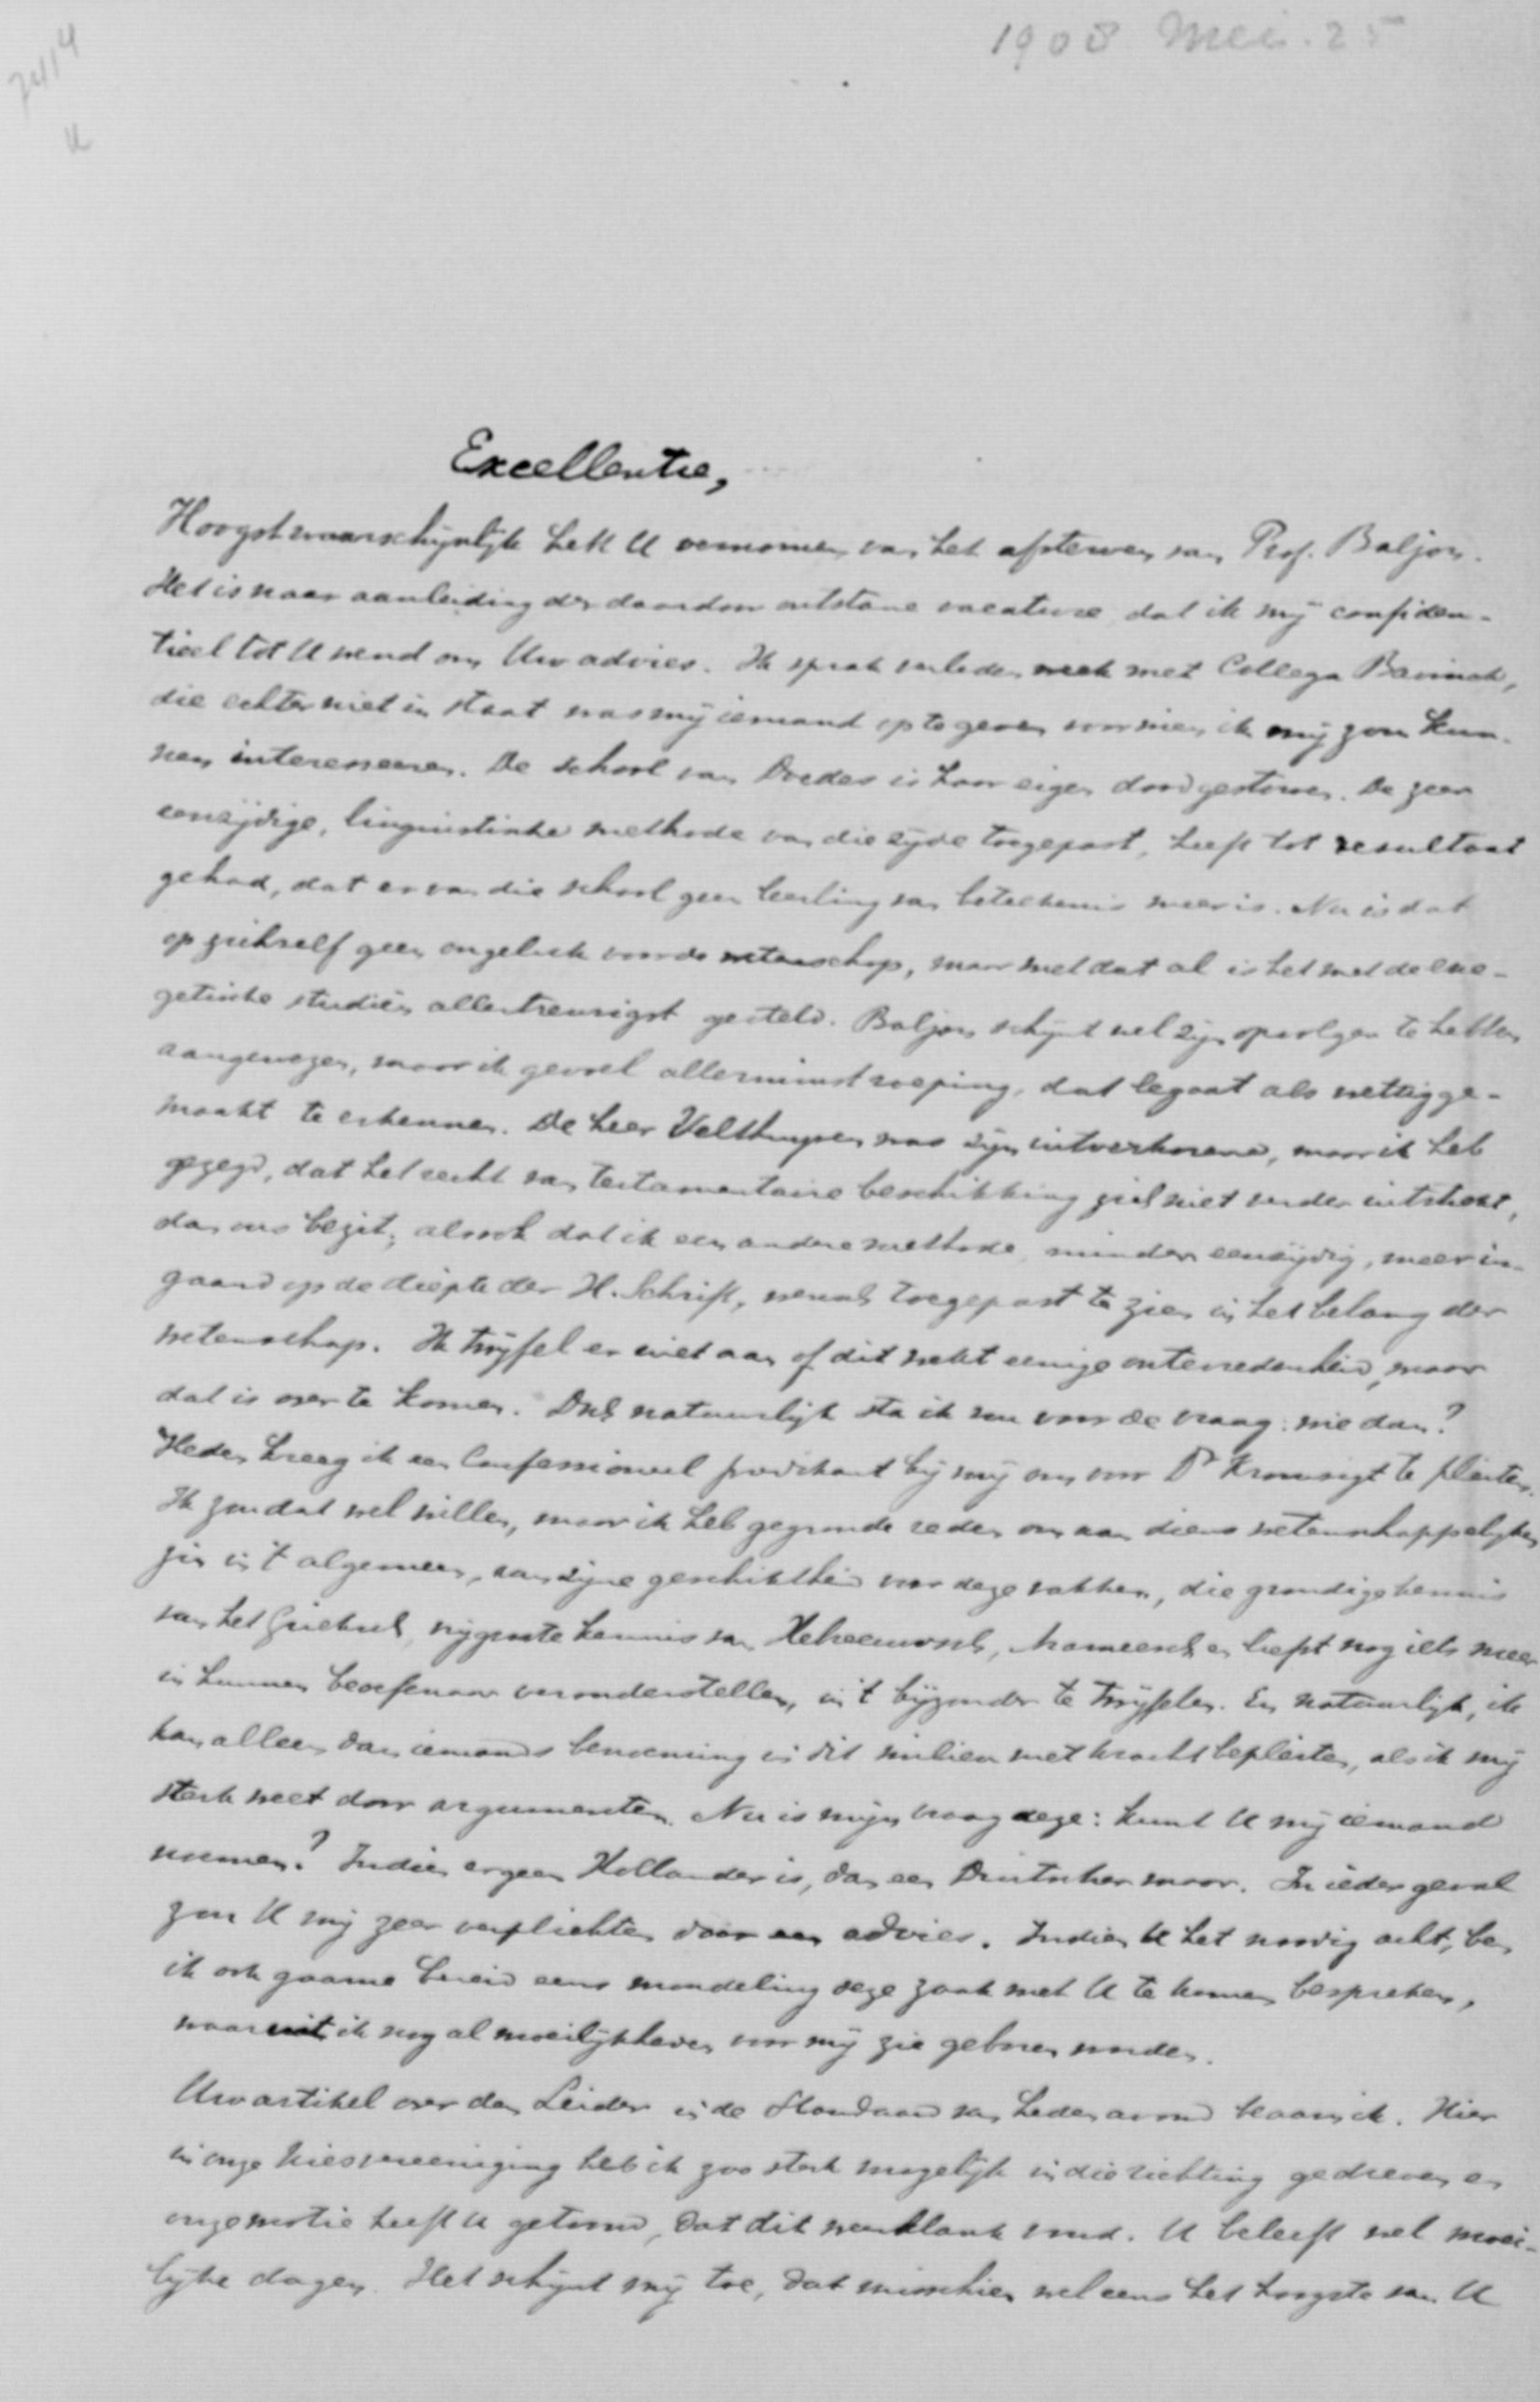 1908 Mei. 25
7414
u
Excellentie,
Hoogstwaarschijnlijk hebt U vernomen van het afsterven van Prof. Baljon.
Het is naar aanleiding der daardoor ontstane vacature, dat ik mij confiden-
tieel tot U wend om Uw advies. Ik sprak verleden week met Collega Bavinck,
die echter niet in staat was mij iemand op te geven voor wien ik mij zou kun-
nen interesseeren. De school van Doedes is haar eigen dood gestorven. De zeer
eenzijdige, linguistische methode van die zijde toegepast, heeft tot resultaat
gehad, dat er van die school geen leerling van beteekenis meer is. Nu is dat
op zichzelf geen ongeluk voor de wetenschap, maar met dat al is het met de exe-
getische studiën allertreurigst gesteld. Baljon schijnt wel zijn opvolger te hebben
aangewezen, maar ik gevoel allerminst roeping, dat legaat als wettig ge-
maakt te erkennen. De heer Velthuysen was zijn uitverkorene, maar ik heb
gezegd, dat het recht van testamentaire beschikking zich niet verder uitstrekt,
dan ons bezit; alsook dat ik een andere methode, minder eenzijdig, meer in-
gaand op de diepte der H. Schrift, wensch toegepast te zien in het belang der
wetenschap. Ik twijfel er niet aan of dit wekt eenige ontevredenheid, maar
dat is over te komen. Doch natuurlijk sta ik nu voor de vraag: wie dan?
Heden kreeg ik een Confessioneel predikant bij mij om voor Dr Kromsigt te pleiten.
Ik zou dat wel willen, maar ik heb gegronde reden om aan diens wetenschappelijken
zin in 't algemeen, aan zijne geschiktheid voor deze vakken, die grondige kennis
van het Grieksch, vrij groote kennis van Hebreeuwsch, Arameesch en liefst nog iets meer
in hunnen beoefenaar veronderstellen, in 't bijzonder te twijfelen. En natuurlijk, ik
kan alleen dan iemands benoeming in dit milieu met kracht bepleiten, als ik mij
sterk weet door argumenten. Nu is mijn vraag deze: kunt U mij iemand
noemen? Indien er geen Hollander is, dan een Duitscher maar. In ieder geval
zou U mij zeer verplichten door een advies. Indien U het noodig acht, ben
ik ook gaarne bereid eens mondeling deze zaak met U te komen bespreken,
waaruit ik nog al moeilijkheden voor mij zie geboren worden.
Uw artikel over den Leider in de Standaard van heden avond las ik. Hier
in onze kiesvereeniging heb ik zoo sterk mogelijk in die richting gedreven en
onze motie heeft U getoond, dat dit weerklank vond. U beleeft wel moei-
lijke dagen. Het schijnt mij toe, dat misschien wel eens het hoogste van U